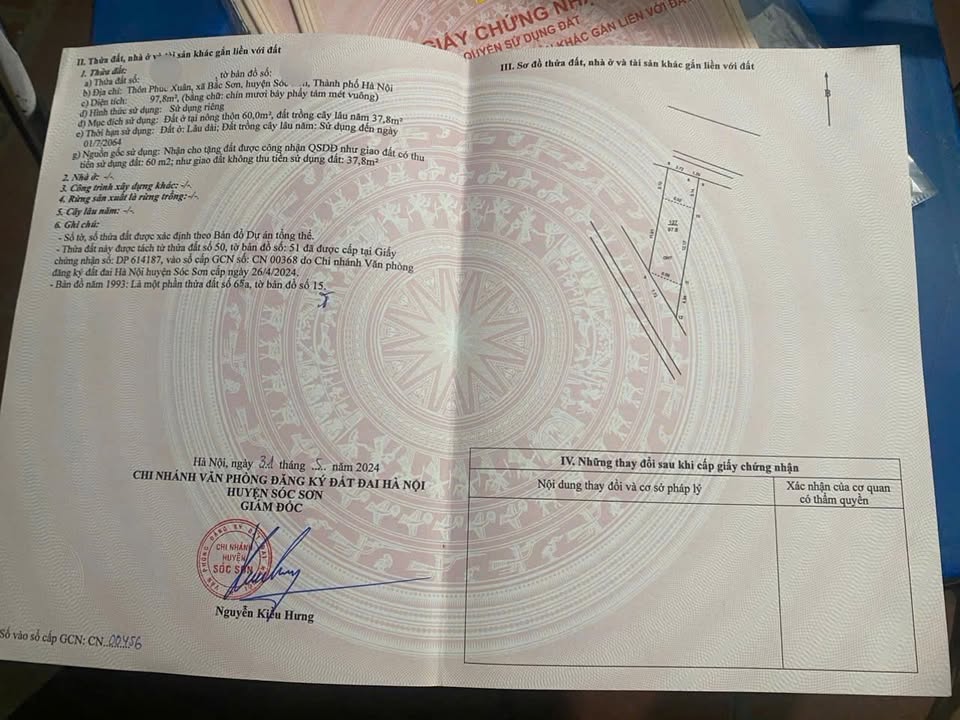 GIẤY CHỨNG NHẬN
QUYỀN SỬ DỤNG ĐẤT
KHÁC GẮN LIỀN VỚI ĐẤT
II. Thửa đất, nhà ở và tài sản khác gắn liền với đất
1. Thửa đất:
a) Thửa đất số: tờ bản đồ số:
b) Địa chỉ: Thôn Phúc Xuân, xã Bắc Sơn, huyện Sóc Thành phố Hà Nội
c) Diện tích: 97,8m², (bằng chữ: chín mươi bảy phẩy tám mét vuông)
d) Hình thức sử dụng: Sử dụng riêng
đ) Mục đích sử dụng: Đất ở tại nông thôn 60,0m², đất trồng cây lâu năm 37,8m²
e) Thời hạn sử dụng: Đất ở: Lâu dài; Đất trồng cây lâu năm: Sử dụng đến ngày
01/7/2064
g) Nguồn gốc sử dụng: Nhận cho tặng đất được công nhận QSDĐ như giao đất có thu
tiền sử dụng đất: 60 m2; như giao đất không thu tiền sử dụng đất: 37,8m²
2. Nhà ở: -/-
3. Công trình xây dựng khác: -/-
4. Rừng sản xuất là rừng trồng:-/-
5. Cây lâu năm: -/-
6. Ghi chú:
- Số tờ, số thửa đất được xác định theo Bản đồ Dự án tổng thể.
- Thửa đất này được tách từ thửa đất số 50, tờ bản đồ số: 51 đã được cấp tại Giấy
chứng nhận số: DP 614187, vào sổ cấp GCN số: CN 00368 do Chi nhánh Văn phòng
đăng ký đất đai Hà Nội huyện Sóc Sơn cấp ngày 26/4/2024.
- Bản đồ năm 1993: Là một phần thửa đất số 65a, tờ bản đồ số 15.
Hà Nội, ngày 31 tháng 5 năm 2024
CHI NHÁNH VĂN PHÒNG ĐĂNG KÝ ĐẤT ĐAI HÀ NỘI
HUYỆN SÓC SƠN
GIÁM ĐỐC
CHI NHÁNH
HUYỆN
SÓC SƠN
Nguyễn Kiều Hưng
Số vào sổ cấp GCN: CN 00456
III. Sơ đồ thửa đất, nhà ở và tài sản khác gắn liền với đất
B
127
97.8
IV. Những thay đổi sau khi cấp giấy chứng nhận
Nội dung thay đổi và cơ sở pháp lý
Xác nhận của cơ quan
có thẩm quyền